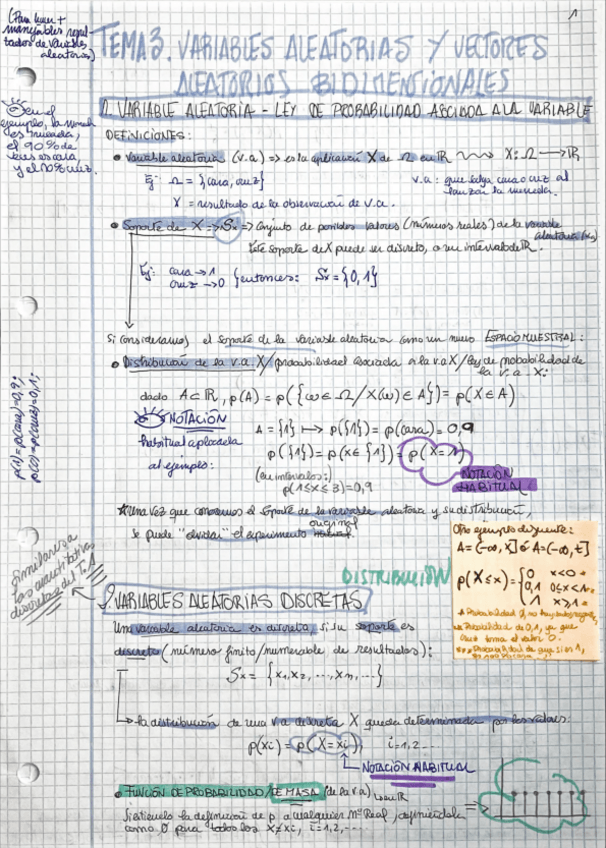 1
(Para hacer +
manejables resul-
tados de variables
aleatorias)
TEMA 3. VARIABLES ALEATORIAS Y VECTORES
ALEATORIOS BIDIMENSIONALES
1. VARIABLE ALEATORIA - LEY DE PROBABILIDAD ASOCIADA A LA VARIABLE
en el
ejemplo, la moneda
es trucada,
el 90% de
veces es cara
y el 10% cruz.
DEFINICIONES:
• Variable aleatoria (v.a.) => es la aplicación X de Ω en ℝ X: Ω → ℝ
Ej: Ω = {cara, cruz} v.a.: que salga cara o cruz al
lanzar la moneda.
X = resultado de la observación de v.a.
• Soporte de X => Sx => Conjunto de posibles valores (números reales) de la variable
aleatoria (x)
Este soporte de X puede ser discreto, o un intervalo de ℝ.
Ej: cara → 1
cruz → 0 } entonces: Sx = {0, 1}
Si consideramos el soporte de la variable aleatoria como un nuevo ESPACIO MUESTRAL:
• Distribución de la v.a. X / probabilidad asociada a la v.a X / ley de probabilidad de
la v.a. X:
dado A ⊂ ℝ, p(A) = p({ω ∈ Ω / X(ω) ∈ A}) = p(X ∈ A)
NOTACIÓN
habitual aplicada
al ejemplo:
A = {1} ↦ p({1}) = p(cara) = 0,9
p({1}) = p(x ∈ {1}) = p(X = 1)
NOTACIÓN
HABITUAL
(en intervalos:)
p(1 ≤ x ≤ 3) = 0,9
p(1) = p(cara) = 0,9;
p(0) = p(cruz) = 0,1;
* Una vez que conocemos el soporte de la variable aleatoria y su distribución,
se puede "olvidar" el experimento original
Otro ejemplo diferente:
A = (-∞, x] ó A = (-∞, t]
p(X ≤ x) = { 0 x < 0
0,1 0 ≤ x < 1
1 x ≥ 1
* Probabilidad 0, no hay
** Probabilidad de 0,1, ya que
toma el valor 0.
*** Probabilidad de que sí es 1,
Similares a
las cuantitativas
discretas del T.1
DISTRIBUCIÓN
2. VARIABLES ALEATORIAS DISCRETAS
Una variable aleatoria es discreta, si su soporte es
discreto (número finito/numerable de resultados):
Sx = {x1, x2, ..., xn, ...}
la distribución de una v.a discreta X queda determinada por los valores:
p(xi) = p(X = xi), i = 1, 2...
NOTACIÓN HABITUAL
• FUNCIÓN DE PROBABILIDAD/DE MASA (de la v.a) en ℝ
Si extiendo la definición de p a cualquier nº Real, definiéndola
como 0 para todos los x ≠ xi, i = 1, 2, ...